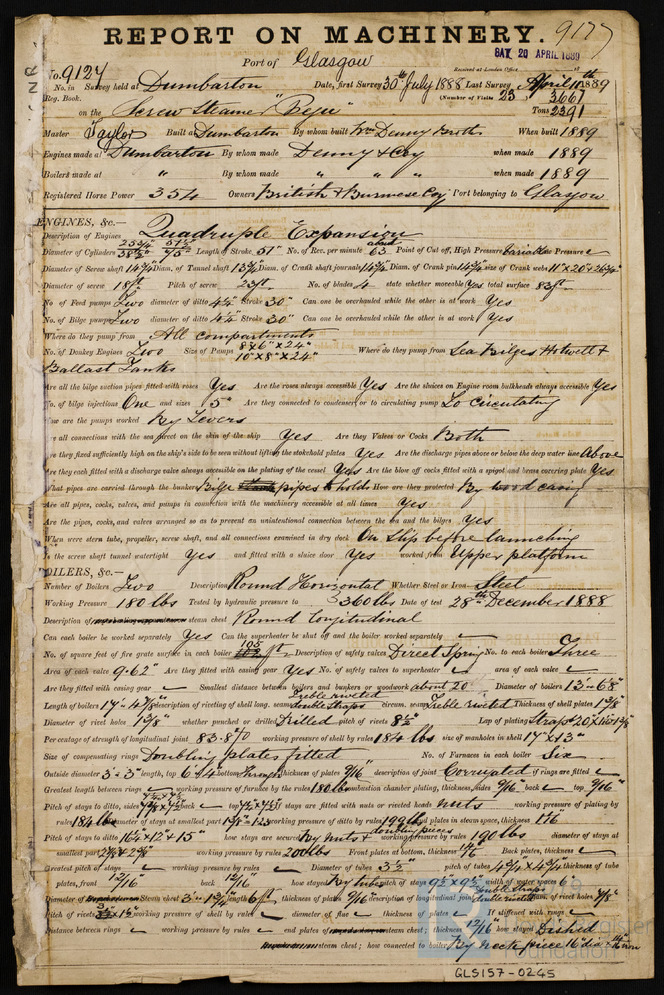 REPORT ON MACHINERY. 9177
Port of Glasgow
SAT. 20 APRIL 1889
Received at London Office
No. 9124
No. in Survey held at Dumbarton Date, first Survey 30th July 1888 Last Survey April 10th 1889
Reg. Book. (Number of Visits 23
on the Screw Steamer "Pegu" Tons 3661 2391
Master Taylor Built at Dumbarton By whom built Wm Denny & Bros When built 1889
Engines made at Dumbarton By whom made Denny & Coy when made 1889
Boilers made at " By whom made " " " when made 1889
Registered Horse Power 354 Owners British & Burmese Coy Port belonging to Glasgow
ENGINES, &c.—
Description of Engines Quadruple Expansion
Diameter of Cylinders Length of Stroke 51" No. of Rev. per minute about 63 Point of Cut off, High Pressure Variable Low Pressure
Diameter of Screw shaft 14¾ Diam. of Tunnel shaft 13¾ Diam. of Crank shaft journals 14¾ Diam. of Crank pin 14¾ size of Crank webs
Diameter of screw 18ft Pitch of screw 23ft No. of blades 4 state whether moveable Yes total surface 83ft
No. of Feed pumps Two diameter of ditto 4½ Stroke 30" Can one be overhauled while the other is at work Yes
No. of Bilge pumps Two diameter of ditto 4½ Stroke 30" Can one be overhauled while the other is at work Yes
Where do they pump from All compartments
No. of Donkey Engines Two Size of Pumps 8 & 6" x 24" 10" x 8" x 24" Where do they pump from Sea Bilges Hotwell &
Ballast Tanks
Are all the bilge suction pipes fitted with roses Yes Are the roses always accessible Yes Are the sluices on Engine room bulkheads always accessible Yes
No. of bilge injections One and sizes 5" Are they connected to condenser, or to circulating pump To circulating
How are the pumps worked By Levers
Are all connections with the sea direct on the skin of the ship Yes Are they Valves or Cocks Both
Are they fixed sufficiently high on the ship's side to be seen without lifting the stokehold plates Yes Are the discharge pipes above or below the deep water line Above
Are they each fitted with a discharge valve always accessible on the plating of the vessel Yes Are the blow off cocks fitted with a spigot and brass covering plate Yes
What pipes are carried through the bunkers Bilge pipes to holds How are they protected By wood casing
Are all pipes, cocks, valves, and pumps in connection with the machinery accessible at all times Yes
Are the pipes, cocks, and valves arranged so as to prevent an unintentional connection between the sea and the bilges Yes
When were stern tube, propeller, screw shaft, and all connections examined in dry dock On slip before launching
Is the screw shaft tunnel watertight Yes and fitted with a sluice door Yes worked from Upper platform
BOILERS, &c.—
Number of Boilers Two Description Round Horizontal Whether Steel or Iron Steel
Working Pressure 180 lbs Tested by hydraulic pressure to 360 lbs Date of test 28th December 1888
Description of steam chest Round Longitudinal
Can each boiler be worked separately Yes Can the superheater be shut off and the boiler worked separately
No. of square feet of fire grate surface in each boiler 105 ft Description of safety valves Direct Spring No. to each boiler Three
Area of each valve 9.62" Are they fitted with easing gear Yes No. of safety valves to superheater area of each valve
Are they fitted with easing gear Smallest distance between boilers and bunkers or woodwork about 20" Diameter of boilers 13'-6⅞"
Length of boilers description of riveting of shell long. seams Treble riveted double straps circum. seams Treble riveted Thickness of shell plates
Diameter of rivet holes whether punched or drilled Drilled pitch of rivets 8½" Lap of plating
Percentage of strength of longitudinal joint 83.8% working pressure of shell by rules 184 lbs size of manholes in shell 17" x 13"
Size of compensating rings Doubling plates fitted No. of Furnaces in each boiler Six
Outside diameter 3'-3" length, top 6'-4 bottom through thickness of plates 9/16" description of joint Corrugated if rings are fitted
Greatest length between rings working pressure of furnace by the rules 180 lbs combustion chamber plating, thickness, sides 9/16" back top 9/16"
Pitch of stays to ditto, sides back top If stays are fitted with nuts or riveted heads nuts working pressure of plating by
rules 184 lbs diameter of stays at smallest part working pressure of ditto by rules 199 lbs end plates in steam space, thickness
Pitch of stays to ditto how stays are secured By nuts & doubling pieces working pressure by rules 190 lbs diameter of stays at
smallest part working pressure by rules 200 lbs Front plates at bottom, thickness Back plates, thickness
Greatest pitch of stays working pressure by rules Diameter of tubes 3½" pitch of tubes 4¾" x 4¾" thickness of tube
plates, front 12/16 back 12/16 how stayed By tubes pitch of stays 9½" x 9½" width of water spaces 6"
Diameter of Steam chest length 6ft thickness of plates 9/16" description of longitudinal joint double straps double riveted diam. of rivet holes 7/8"
Pitch of rivets working pressure of shell by rules diameter of flue thickness of plates If stiffened with rings
Distance between rings working pressure by rules end plates of steam chest; thickness 12/16" how stayed Dished
steam chest; how connected to boiler By neck piece
GLS157-0245